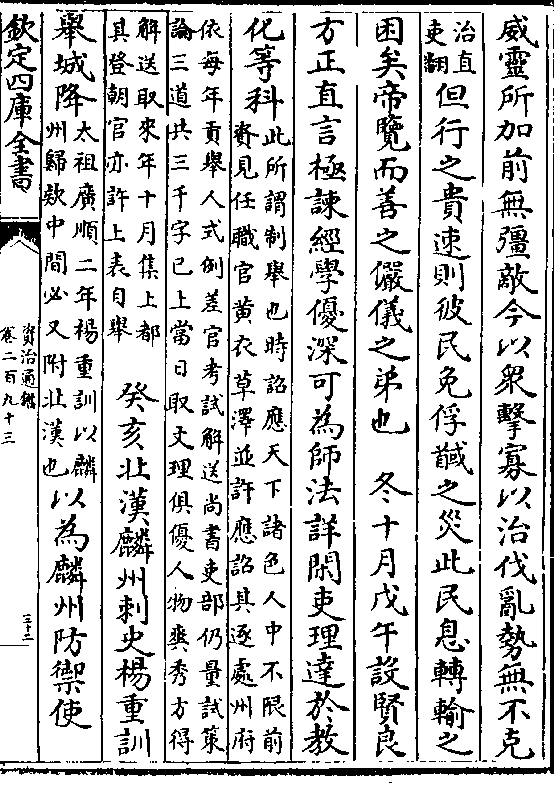 威靈所加前無彊敵今以衆擊寡以治伐亂勢無不克
治直
吏翻
但行之貴速則彼民免俘馘之災此民息轉輸之
困矣帝覽而善之儼儀之弟也　冬十月戊午設賢良
方正直言極諫經學優深可為師法詳閑吏理達於教
化等科
此所謂制舉也時詔應天下諸色人中不限前
資見任職官黄衣草澤並許應詔其逐處州府
依每年貢舉人式例差官考試解送尚書吏部仍量試策
論三道共三千字已上當日取文理俱優人物爽秀方得
解送取來年十月集上都
其登朝官亦許上表自舉
癸亥北漢麟州刺史楊重訓
舉城降
太祖廣順二年楊重訓以麟
州歸欵中間必又附北漢也
以為麟州防禦使
欽定四庫全書
資治通鑑
卷二百九十三
三十二